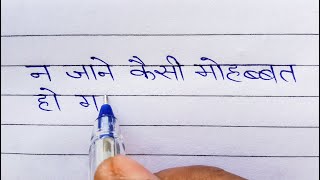 न जाने कैसी मोहब्बत
हो ग